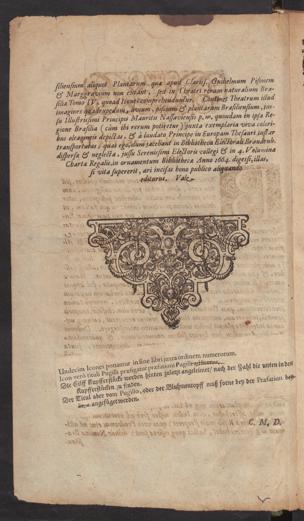 siliensium aliquot Plantarum, quæ apud Clariss. Guilhelmum Pisonem
& Marggravium non extant, sed in Theatri rerum naturalium Bra-
silia Tomo IV, quoad Icones comprehenduntur. Continet Theatrum illud
imagines quadrupedum, avium, piscium & plantarum Brasiliensium, jus-
su Illustrissimi Principis Mauritii Nassoviensis p. m. quondam in ipsa Re-
gione Brasilia (cum ibi rerum potiretur) juxta exemplaria viva colori-
bus eleganter depictas, & à laudato Principe in Europam
transportatas; quas ego, dum jacebant in Bibliotheca Electorali Brandenb.
dispersæ & neglectæ, jussu Serenissimi Electoris collegi & in 4. Volumina
Charta Regalis, in ornamentum Bibliothecæ Anno 1664. digessi, illas,
si vita supererit, æri incisas bono publico aliquando
editurus. Vale.
Undecim Icones ponantur in fine libri juxta ordinem numerorum.
Icon verò titulo Pugilli præfigatur præfationi
Die Eilff Kupfferstück werden hinten zuletzt angeleimet/ nach der Zahl die unten in den
Kupfferstücken zu finden.
Der Titul aber vom Pugillo, oder der Bluhmentopff muß forne bey der Præfation
angefüget werden.
C. M. D.